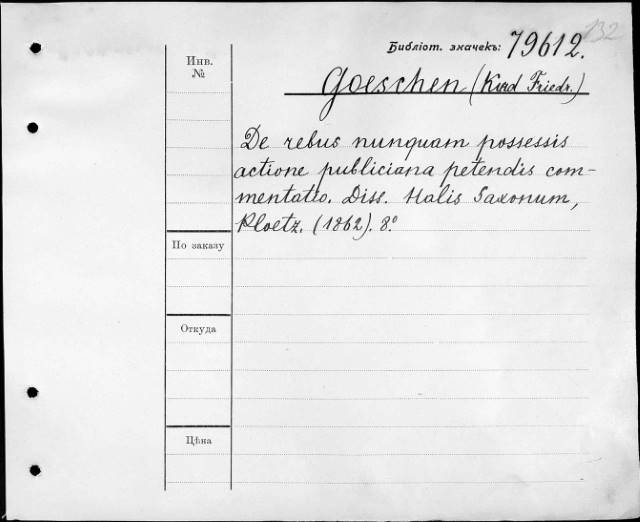 132
Библіот. значекъ: 79612.
Инв.
№
Goeschen (Kurd Friedr.)
De rebus nunquam possessis
actione publiciana petendis com-
mentatio. Diss. Halis Saxonum,
Ploetz. (1862). 8.°
По заказу
Откуда
Цѣна